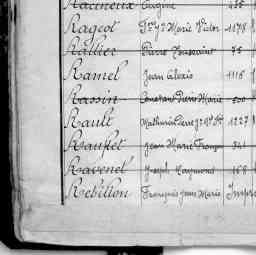 Racineux Eugène
Rageot Marie Victor 1178
Rallier Pierre Toussaint 75
Ramel Jean Alexis 1116
Rassin Constant Pierre Marie 500
Rault Mathurin Pierre 1227
Rauflet Jean Marie François 341
Ravenel Joseph Raymond 168
Rebillon François Jean Marie